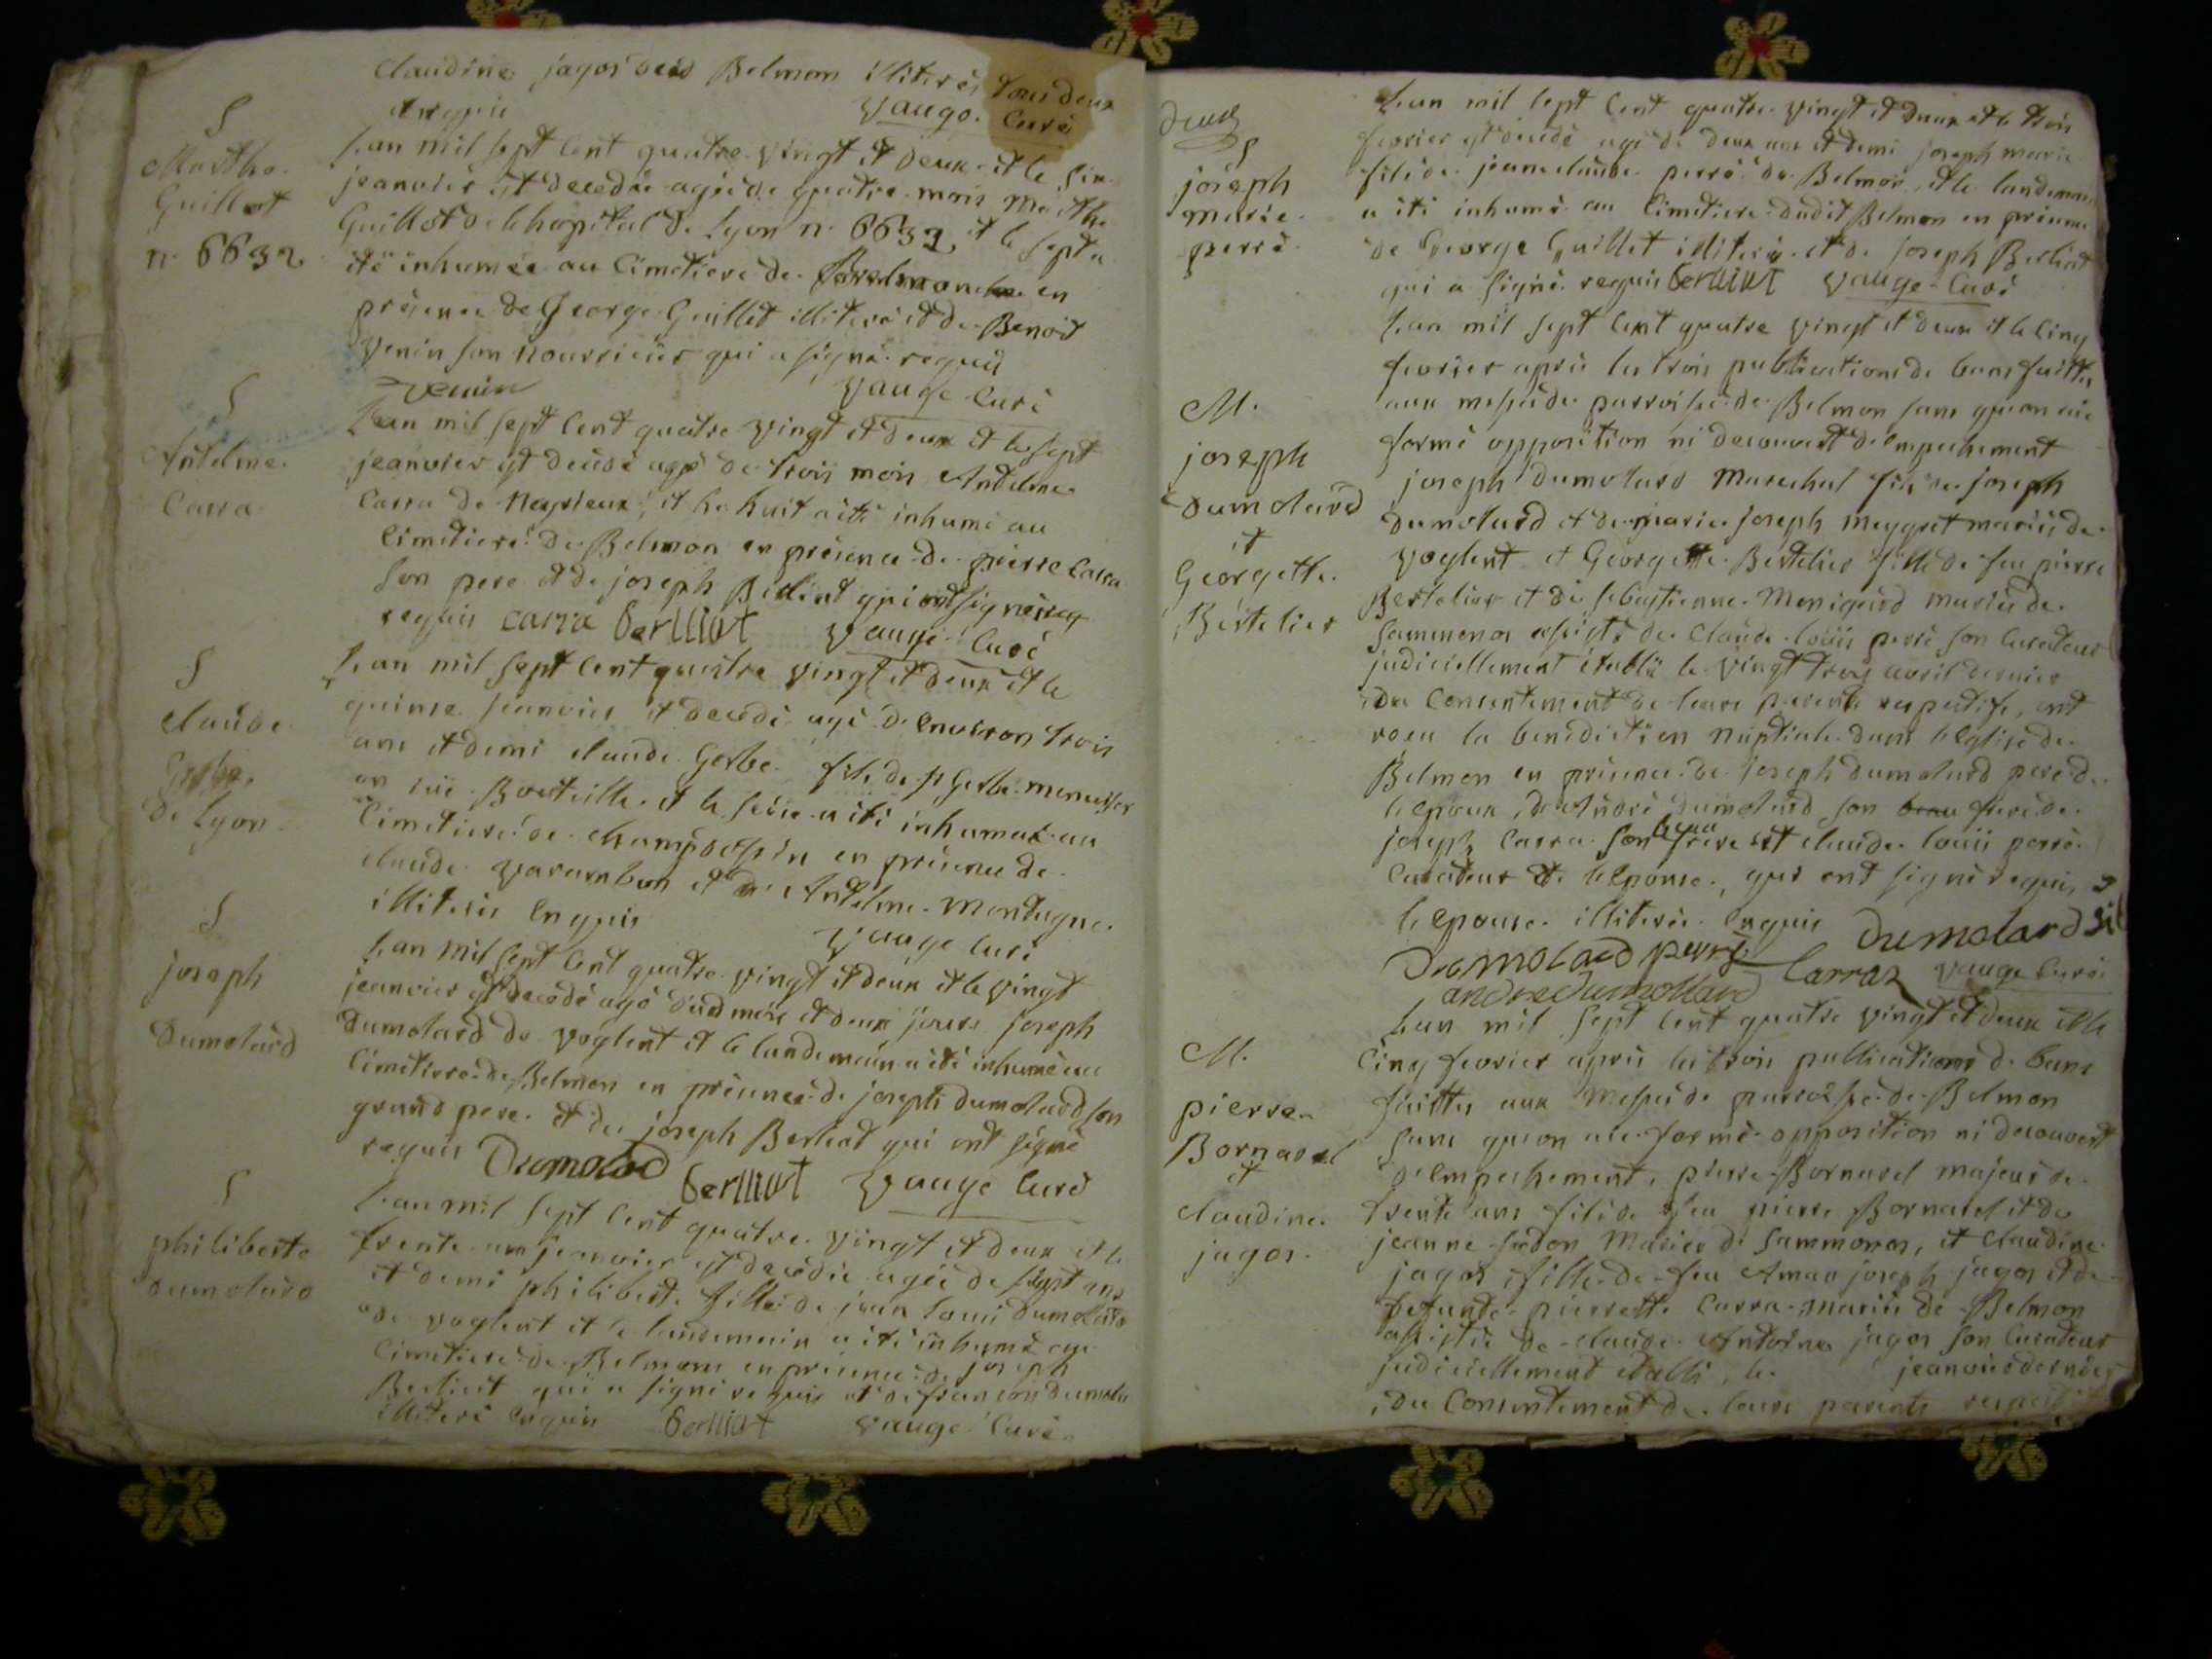 claudine jagos de Belmon illiterés tous deux
enquis vauge. Curé
S
Marthe
Guillot
n. 6632
Lan mil sept cent quatre vingt et deux et le six
jeanvier est decedée agée de quatre mois Marthe
Guillot de lhopital de Lyon n. 6632 et le sept a
été inhumée au Cimetiere de Belmon en
présence de George Guillet illiteré et de Benoit
venin son nourricier qui a signé requis
venin vauge Curé
S
Antelme
Carra
Lan mil sept cent quatre vingt et deux et le sept
jeanvier est decédé agé de trois mois Antelme
Carra de Neyrieux, et le huit a été inhumé au
Cimetiere de Belmon en présence de pierre Carra
son pere et de joseph Berliat qui ont signé
requis carra berlliat vauge Curé
S
claude
Gerbe
de Lyon
Lan mil sept cent quatre vingt et deux et le
quinse jeanvier est decedé agé denviron trois
ans et demi claude Gerbe fils de Gerbe menuisier
en rüe Bouteille et le seise a été inhumé au
Cimetiere de en présence de
claude varambon et de Antelme Montagne
illiterés Enquis vauge curé
S
joseph
Dumolard
Lan mil sept cent quatre vingt et deux et le vingt
jeanvier est decedé agé dun mois et deux jours joseph
Dumolard de voglent et le lendemain a été inhumé au
Cimetiere de Belmon en présence de joseph dumolard son
grand pere et de joseph Berliat qui ont signé
requis Dumolad berlliat vauge Curé
S
philiberte
dumolard
Lan mil sept cent quatre vingt et deux et le
trente un jeanvier est decedée agée de sept ans
et demi philiberte fille de jean Louis Dumolard
de voglent et le lendemain a été inhumé au
Cimetiere de Belmon en présence de joseph
Berliat qui a signé requis et de francois dumola
illiteré Enquis berlliat vauge Curé
deux
S
joseph
marie
perré
Lan mil sept Cent quatre vingt et deux et le trois
fevrier est decedé agé de deux ans et demi joseph marie
fils de jeanclaude perré de Belmon, et le landemain
a été inhumé au Cimetiere dudit Belmon en présence
de George Guillet illiteré et de joseph Berliat
qui a signé requis berlliat vauge Curé
M.
joseph
Dumolard
et
Georgette
Bertelier
Lan mil sept Cent quatre vingt et deux et le cinq
fevrier aprés les trois publications de bans faittes
aux messes de parroisse de Belmon sans quon aie
formé opposition ni decouvert dempechement
joseph dumolard Marechal fils de joseph
dumolard et de marie joseph meygret mariés de
voglent et Georgette Bertelier fille de feu pierre
Bertelier et de sebastienne Monigard mariés de
Sammonos assistée de Claude Loüis perré son Curateur
judiciellement établi le vingt trois avril dernier
, du Consentement de leurs parents respectifs, ont
recu la benediction nuptiale dans leglise de
Belmon en présence de joseph dumolard pere de
lepoux, de André dumolard son beau frere de
joseph Carra son beau frere et claude Loüis perré
Curateur de lepouse, qui ont signé requis
lepouse illiterée enquis Dumolard
Dumolard perré Carraz vauge Curé
andre dumollard
M.
pierre
Bornarel
et
claudine
jagos
Lan mil sept Cent quatre vingt et deux et le
cinq fevrier aprés les trois publications de bans
faittes aux Messes de parroisse de Belmon
sans quon aie formé opposition ni decouvert
dempechement, pierre Bornarel majeur de
trente ans fils de feu pierre Bornarel et de
jeanne Mariés de Sammonos, et Claudine
jagos fille de feu joseph jagos et de
defunte pierrette Carra mariés de Belmon
assistée de claude Antoine jagos son Curateur
judiciellement etabli, le jeanvier dernier
, du Consentement de leurs parents